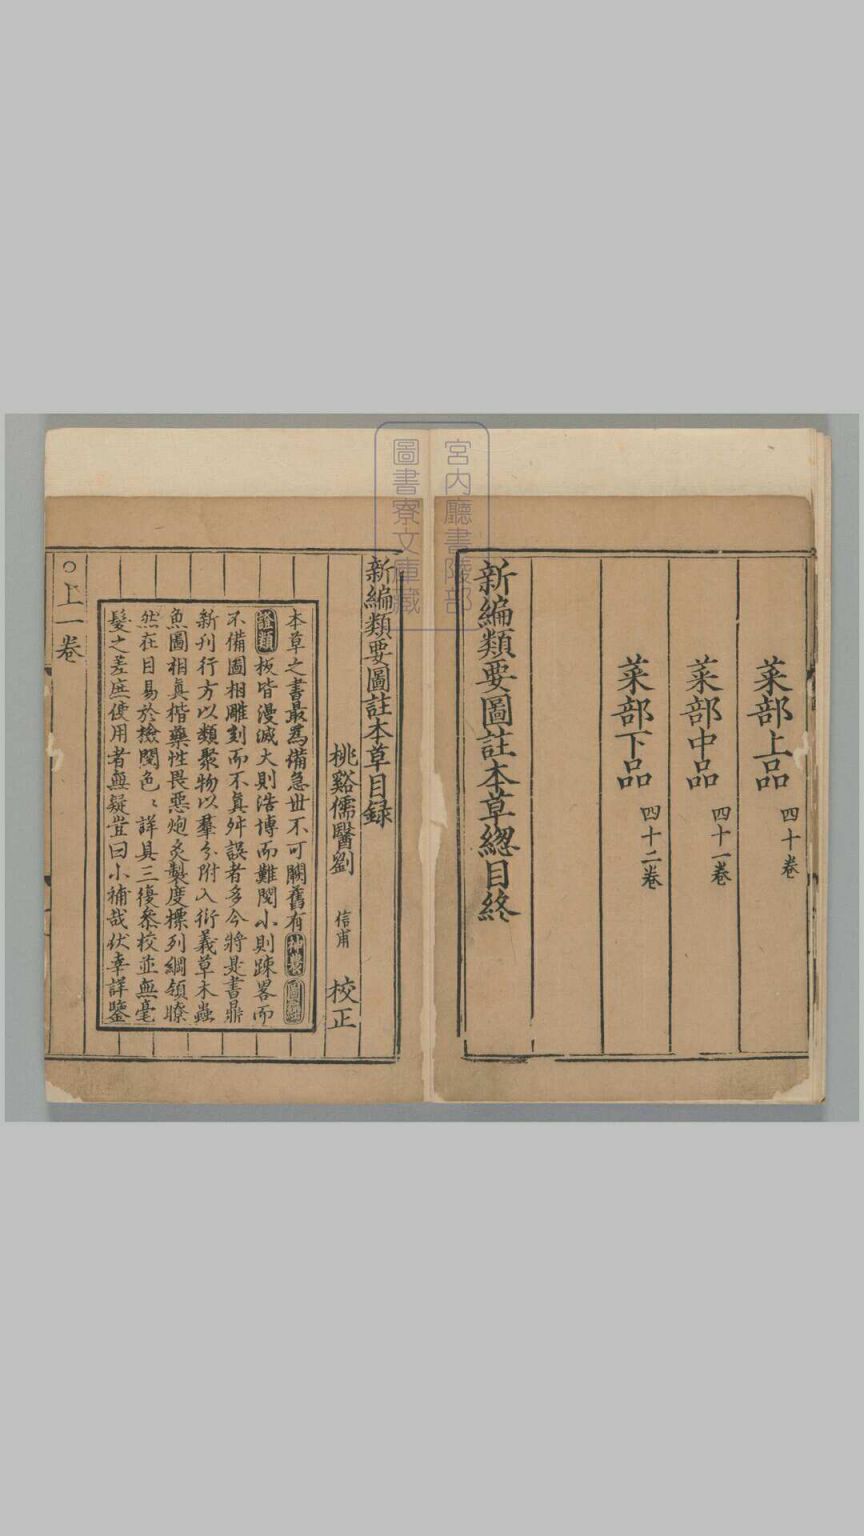 菜部上品 四十卷
菜部中品 四十一卷
菜部下品 四十二卷
新編類要圖註本草總目終
宮内廳書陵部
圖書寮文庫藏
新編類要圖註本草目録
桃谿儒醫劉 信甫 校正
本草之書最爲備急世不可闕舊有神農圖經
證類板皆漫滅大則浩博而難閱小則踈畧而
不備圖相雕刻而不眞舛誤者多今將是書鼎
新刊行方以類聚物以羣分附入衍義草木蟲
魚圖相眞楷藥性畏惡炮炙製度標列綱領瞭
然在目易於撿閱色〻詳具三復叅校並無毫
髮之差庶使用者無疑豈曰小補哉伏幸詳鑒
○上一卷